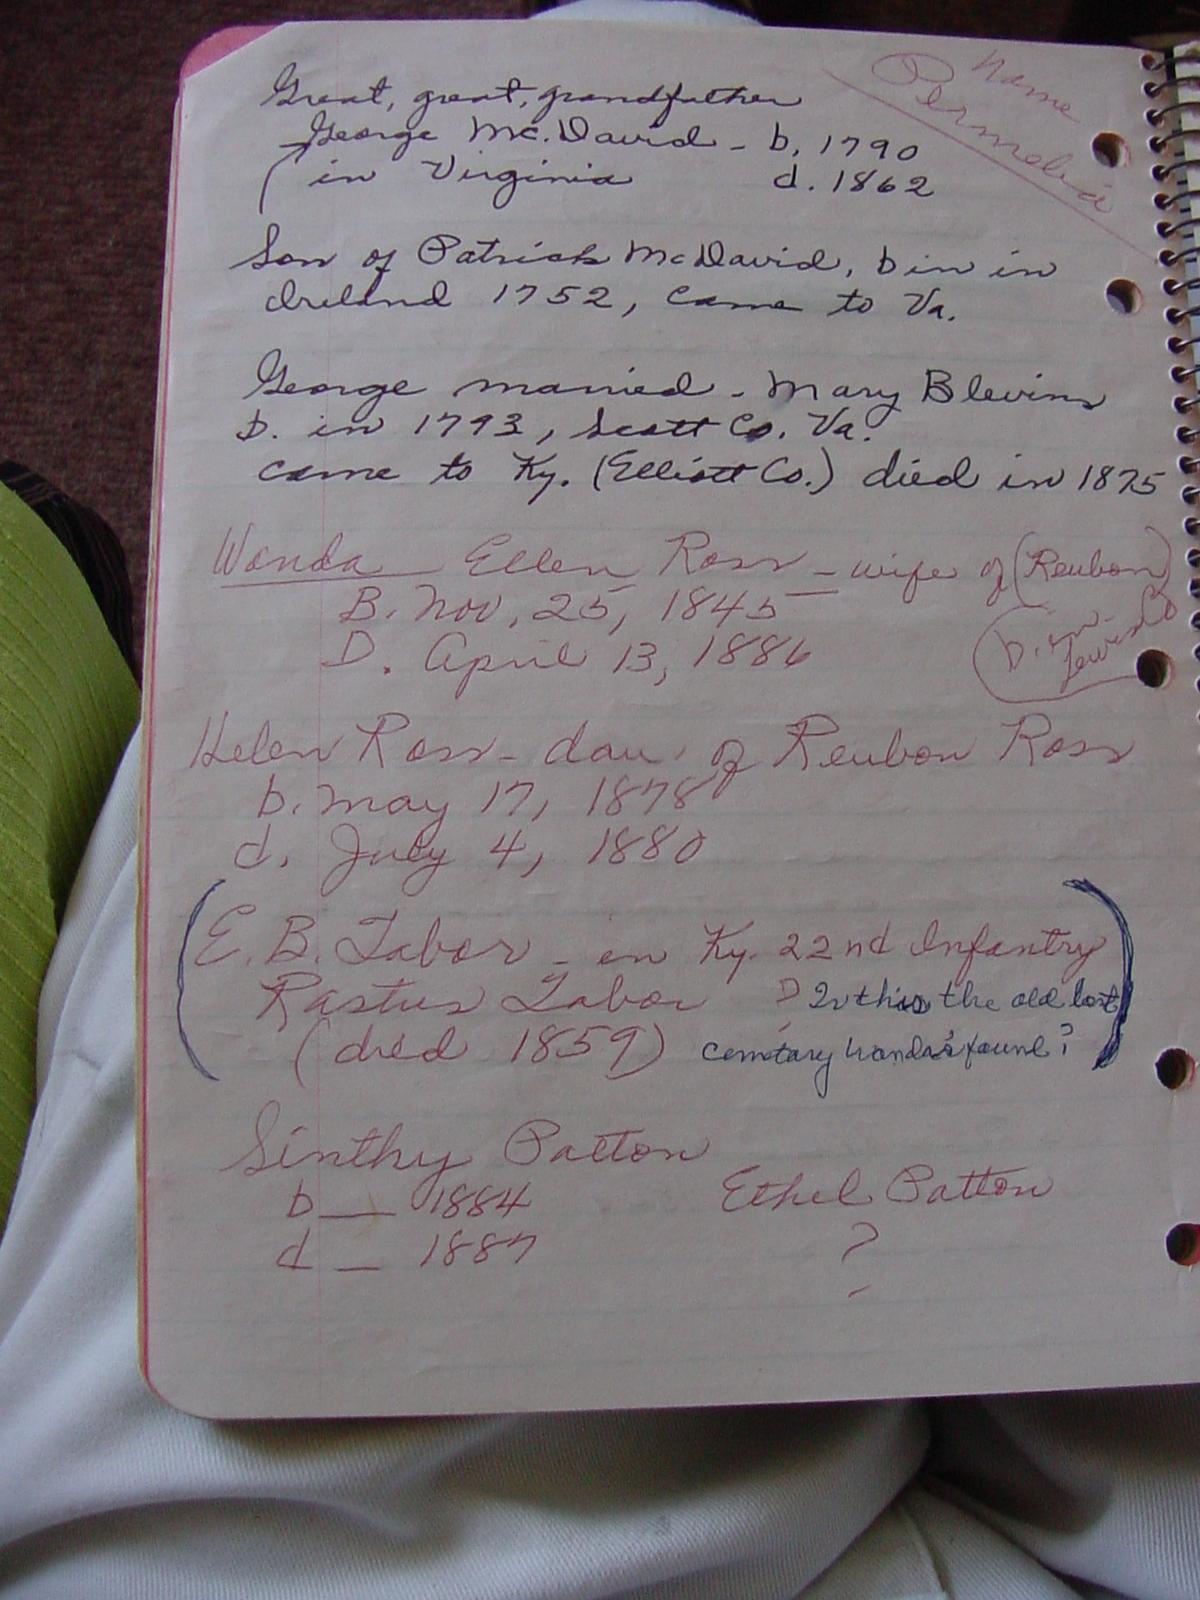 Name
Permelia
Great, great, grandfather
George Mc.David - b. 1790
in Virginia d. 1862
Son of Patrick McDavid, b in in
Ireland 1752, came to Va.
George married - Mary Blevins
b. in 1793, Scott Co. Va.
came to Ky. (Elliott Co.) died in 1875
Wanda Ellen Ross - wife of (Reubon)
B. Nov, 25, 1845
(b. in
Lewis Co
D. April 13, 1886
Helen Ross - dau. of Reubon Ross
b. May 17, 1878
d. July 4, 1880
(E. B. Tabor - en Ky. 22nd Infantry
Rastus Tabor ? Is this the old lost
(died 1859) cemetary Wanda's found?)
Sinthy Patton
b __ 1884 Ethel Patton
d __ 1887 ?